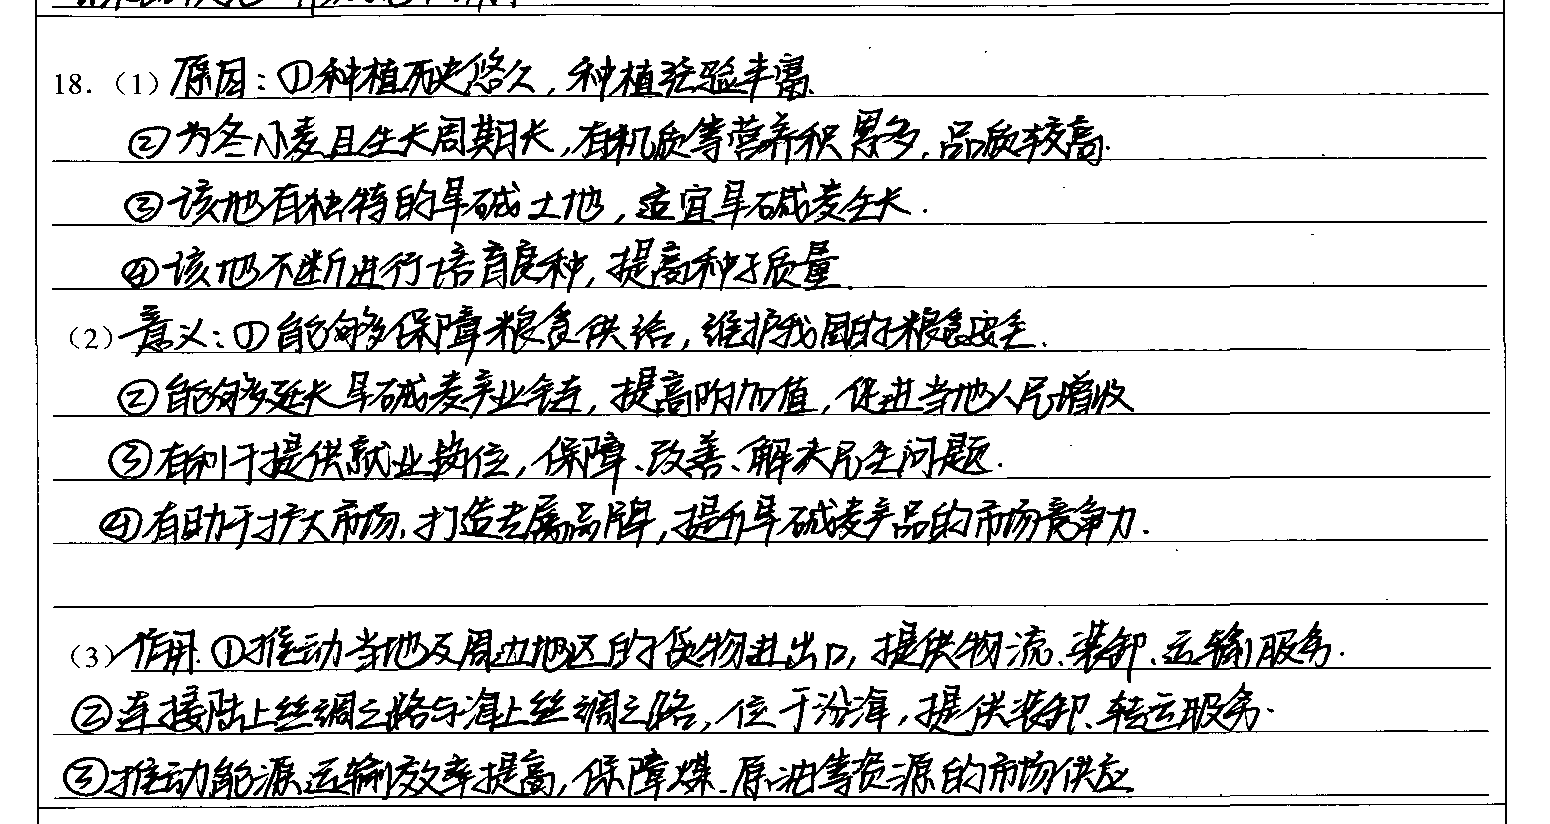 18.（1）原因：①种植历史悠久，种植经验丰富.
②为冬小麦且生长周期长，有机质等营养积累多，品质较高.
③该地有独特的旱碱土地，适宜旱碱麦生长.
④该地不断进行培育良种，提高种子质量.
（2）意义：①能够保障粮食供给，维护我国的粮食安全.
②能够延长旱碱麦产业链，提高附加值，促进当地人民增收
③有利于提供就业岗位，保障、改善、解决民生问题.
④有助于扩大市场，打造专属品牌，提升旱碱麦产品的市场竞争力.
（3）作用.①推动当地及周边地区的货物进出口，提供物流、装卸、运输服务.
②连接陆上丝绸之路与海上丝绸之路，位于沿海，提供装卸、转运服务.
③推动能源运输效率提高，保障煤、原油等资源的市场供应